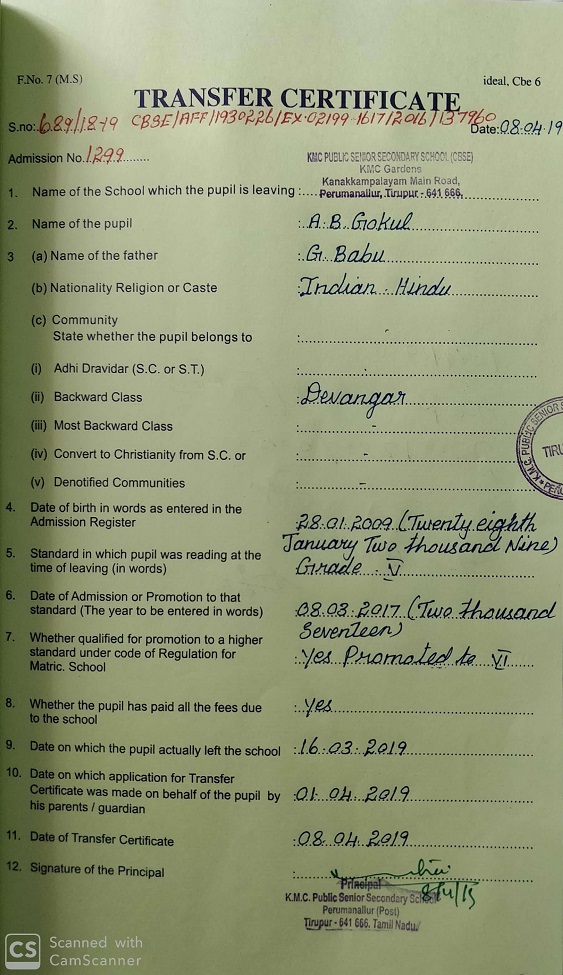 F.No. 7 (M.S)
ideal, Cbe 6
TRANSFER CERTIFICATE
S.no: 689/18-19 CBSE/AFF/1930226/EX-02199-1617/2016/137960
Date: 08.04.19
Admission No. 1299
KMC PUBLIC SENIOR SECONDARY SCHOOL (CBSE)
KMC Gardens
Kanakkampalayam Main Road,
1. Name of the School which the pupil is leaving : Perumanallur, Tirupur - 641 666.
2. Name of the pupil : A.B. Gokul
3 (a) Name of the father : G. Babu
(b) Nationality Religion or Caste : Indian - Hindu
(c) Community
State whether the pupil belongs to : -
(i) Adhi Dravidar (S.C. or S.T.) : -
(ii) Backward Class : Devangar
(iii) Most Backward Class : -
(iv) Convert to Christianity from S.C. or : -
(v) Denotified Communities : -
K.M.C. PUBLIC SENIOR
TIRU
4. Date of birth in words as entered in the
Admission Register : 28.01.2009 (Twenty eighth
January Two thousand Nine)
5. Standard in which pupil was reading at the
time of leaving (in words) : Grade - V
6. Date of Admission or Promotion to that
standard (The year to be entered in words) : 08.03.2017 (Two thousand
Seventeen)
7. Whether qualified for promotion to a higher
standard under code of Regulation for : Yes Promoted to VI
Matric. School
8. Whether the pupil has paid all the fees due : Yes
to the school
9. Date on which the pupil actually left the school : 16.03.2019
10. Date on which application for Transfer
Certificate was made on behalf of the pupil by : 01.04.2019
his parents / guardian
11. Date of Transfer Certificate : 08.04.2019
12. Signature of the Principal :
Principal
K.M.C. Public Senior Secondary School
Perumanallur (Post)
Tirupur - 641 666. Tamil Nadu
CS Scanned with
CamScanner